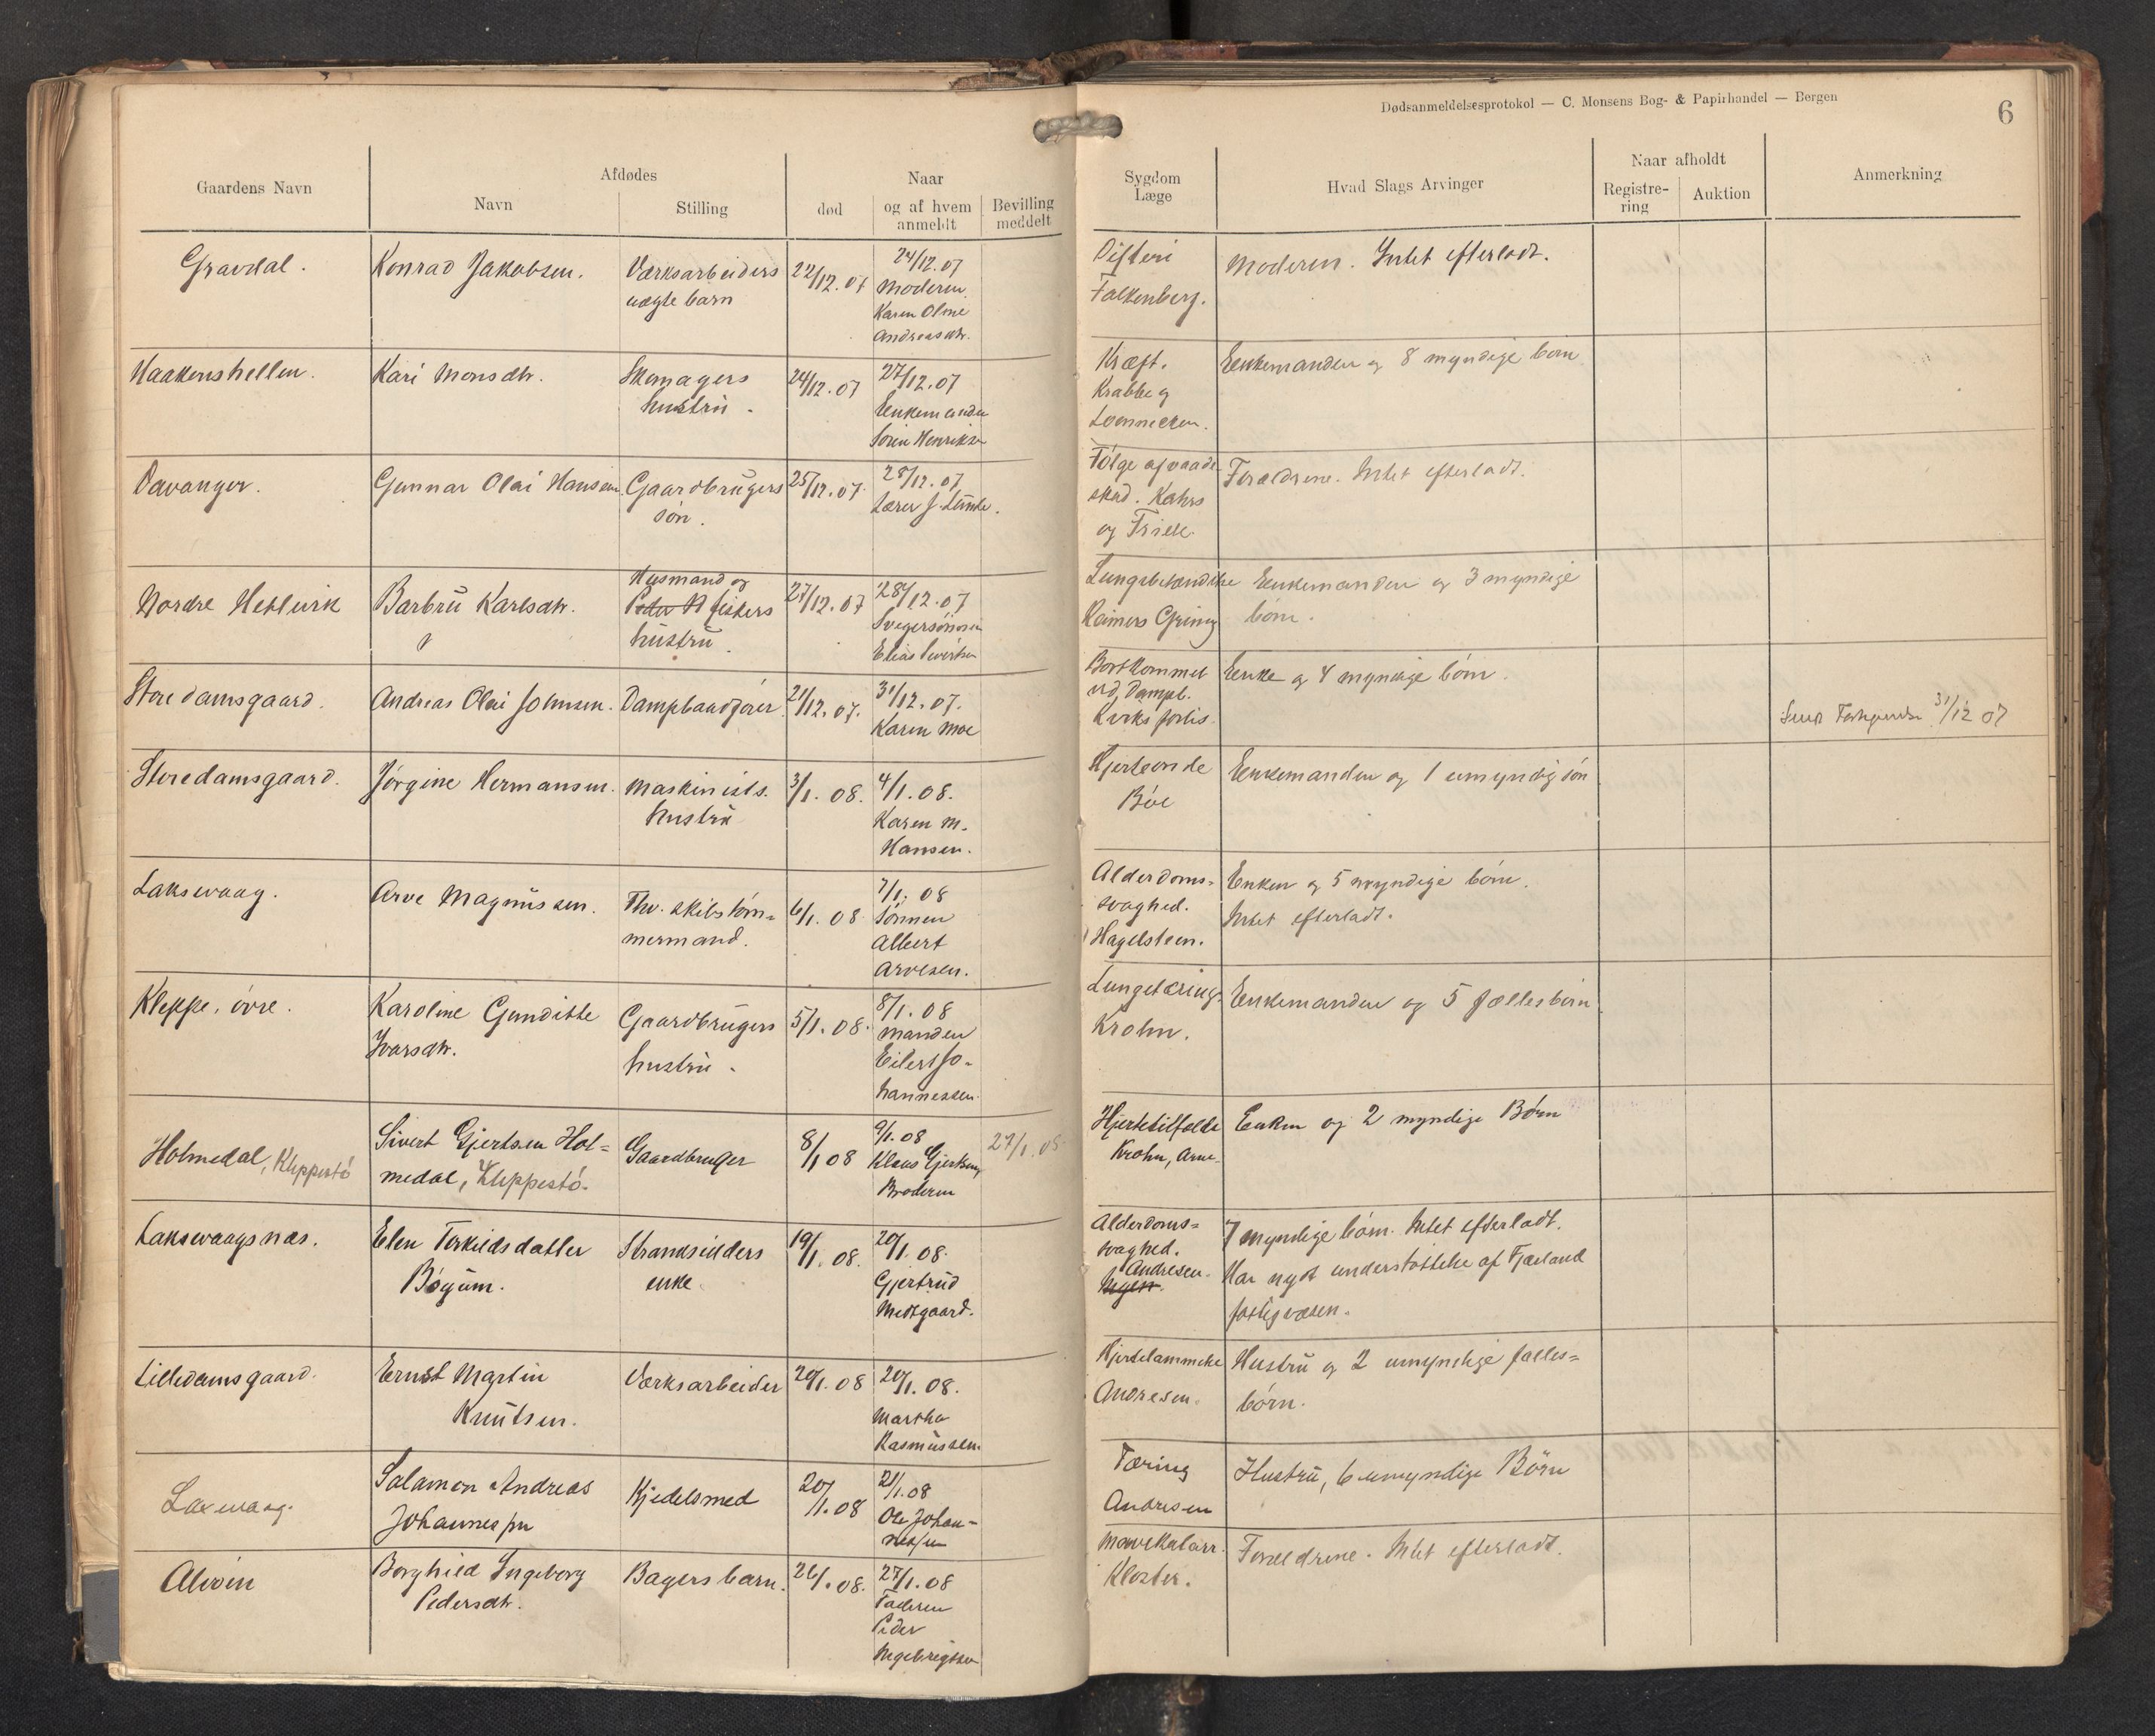 Dødsanmeldelsesprotokol — C. Monsens Bog- & Papirhandel — Bergen
6
Gaardens Navn
Afdødes
Navn
Stilling
død
Naar
og af hvem
anmeldt
Bevilling
meddelt
Sygdom
Læge
Hvad Slags Arvinger
Naar afholdt
Registre-
ring
Auktion
Anmerkning
Gravdal.
Konrad Jakobsen.
Værksarbeiders
uægte barn
22/12.07
24/12.07
Moderen
Karen Oline
Andreasdtr.
Difteri
Falkenberg.
Moderen. Intet efterladt.
Haakonshellen.
Kari Monsdtr.
Skomagers
hustru.
24/12.07
27/12.07
Enkemanden
Kræft.
Krabbe og
Loennecken.
Enkemanden og 8 myndige børn
Davanger.
Gunnar Olai Hansen
Gaardbrugers
søn.
25/12.07.
28/12.07
Lærer J. Lunde.
Følge af vaade-
skud. Kahrs
og Friele.
Forældrene. Intet efterladt.
Nordre Hetlevik
Barbru Karlsdtr.
Husmand og
fiskers
hustru.
27/12.07
28/12.07
Svigersønnen
Elias Sivertsen
Lungebetændelse
Reimers Grung
Enkemanden og 3 myndige
børn.
Store damsgaard.
Andreas Olai Johnsen.
Dampbaadfører
21/12.07.
31/12.07.
Karen Moe
Bortkommet
ved Dampb.
Kirks forlis.
Enke og 4 myndige børn.
31/12 07
Store damsgaard.
Jørgine Hermansen.
Maskinists
hustru
3/1.08.
4/1.08.
Karen M.
Hansen.
Hjerteonde
Bøe
Enkemanden og 1 umyndig søn
Laksevaag.
Arve Magnussen.
Fhv. skibstøm=
mermand.
6/1.08
7/1.08
Sønnen
Albert
Arvesen.
Alderdoms=
svaghed.
Hagelsteen.
Enken og 5 myndige børn.
Intet efterladt.
Kleppe, øvre.
Karoline Gunditte
Ivarsdtr.
Gaardbrugers
hustru.
5/1.08.
8/1.08
Manden
Eilert Jo-
hannessen.
Lungetæring.
Krohn.
Enkemanden og 5 fællesbørn
Holmedal, Kleppestø
Sivert Gjertsen Hol=
medal, Kleppestø.
Gaardbruger
8/1 08
9/1.08
Klaus Gjertsen,
Broderen
27/1.08
Hjertetilfælde
Krohn, Arne.
Enken og 2 myndige Børn
Laksevaagsnæs.
Elen Torkildsdatter
Bøyum.
Strandsidders
enke.
19/1.08.
20/1.08.
Gjertrud
Midtgaard.
Alderdoms=
svaghed.
Andresen.
7 myndige børn. Intet efterladt.
Har nydt understøttelse af Fjærland
fattigvæsen.
Lilledamsgaard.
Ernst Martin
Knutsen.
Værksarbeider
20/1.08
20/1.08.
Martha
Rasmussen.
Hjertelammelse
Andresen.
Hustru og 2 umyndige fælles=
børn.
Laxevaag.
Salamon Andreas
Johannessen
Kjedelsmed
20/1.08
21/1.08
Ole Johan-
nessen
Tæring
Andresen
Hustru, 6 umyndige Børn
Alvøen
Borghild Ingeborg
Pedersdtr.
Bagers barn.
26/1.08.
27/1.08
Faderen
Peder
Ingebrigtsen
Mavekatarr.
Kloster.
Forældrene. Intet efterladt.